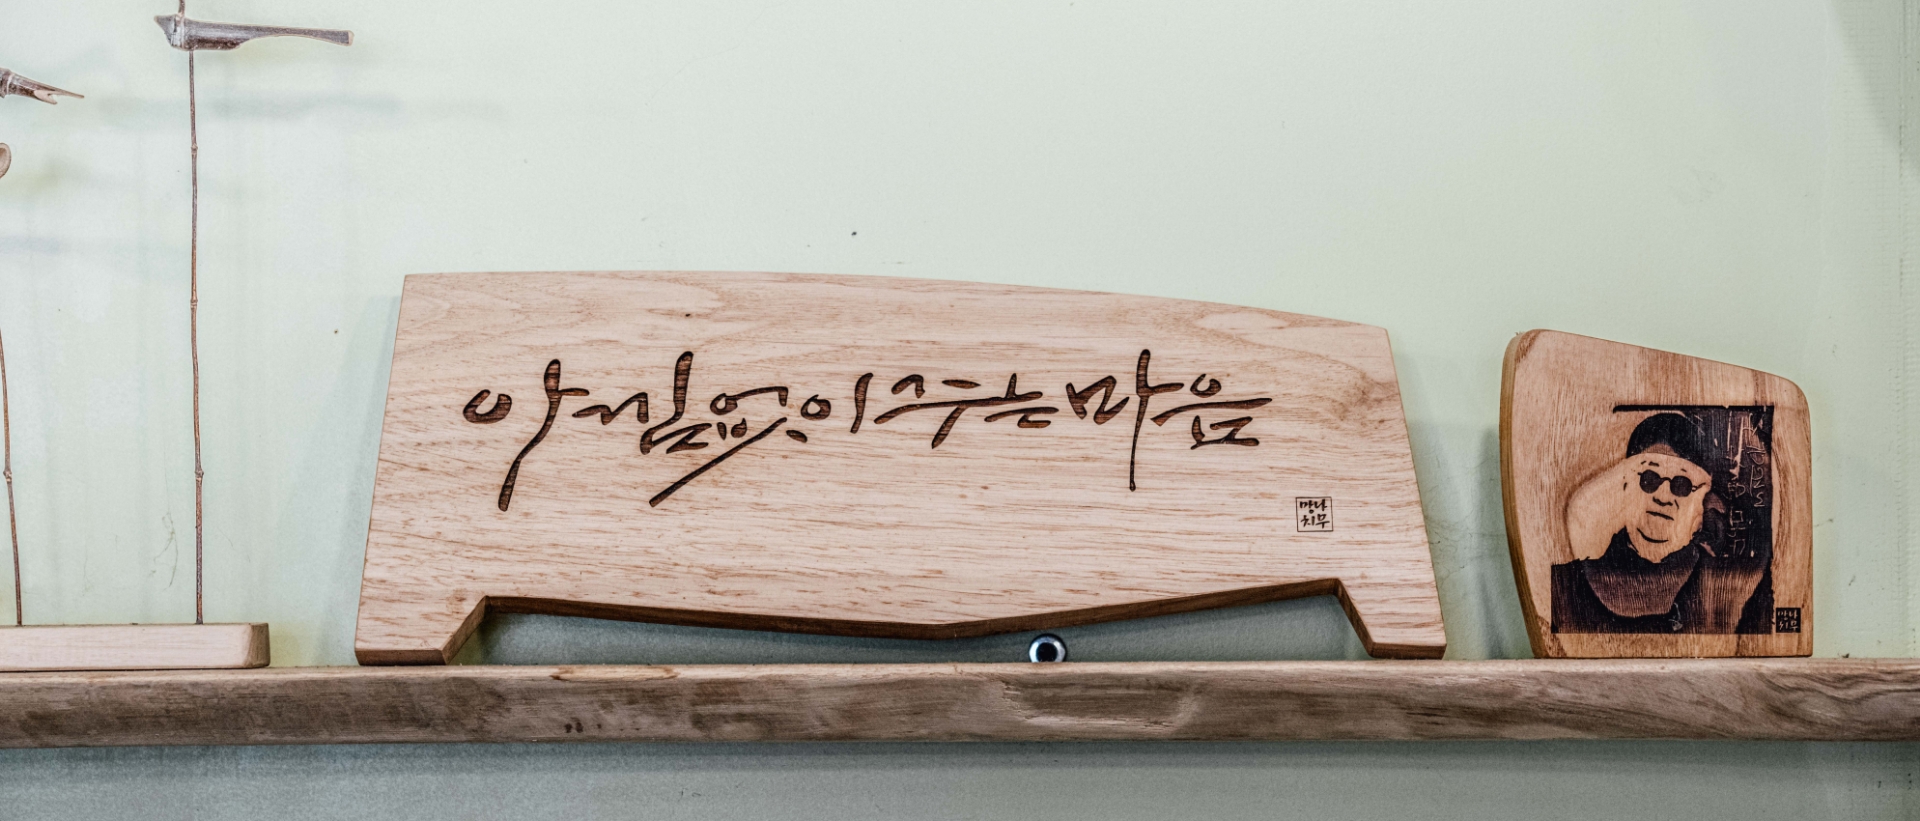 아낌없이 주는 마음
망나
치무
망나
치무